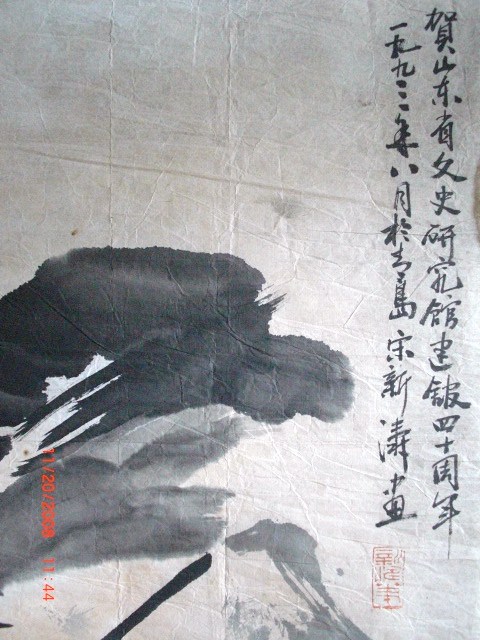 賀山东省文史研究館建館四十周年
一九九三年八月於青島宋新涛画
11/20/2009 11:44